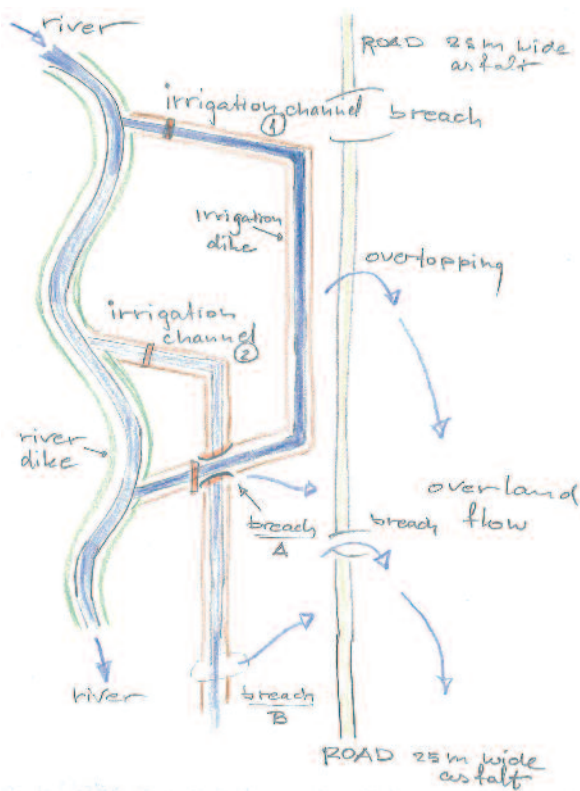 river
ROAD 25m wide
asfalt
irrigation channel
1
breach
irrigation
dike
overtopping
irrigation
channel
2
river
dike
overland
flow
breach
A
breach
river
breach
B
ROAD 25m wide
asfalt